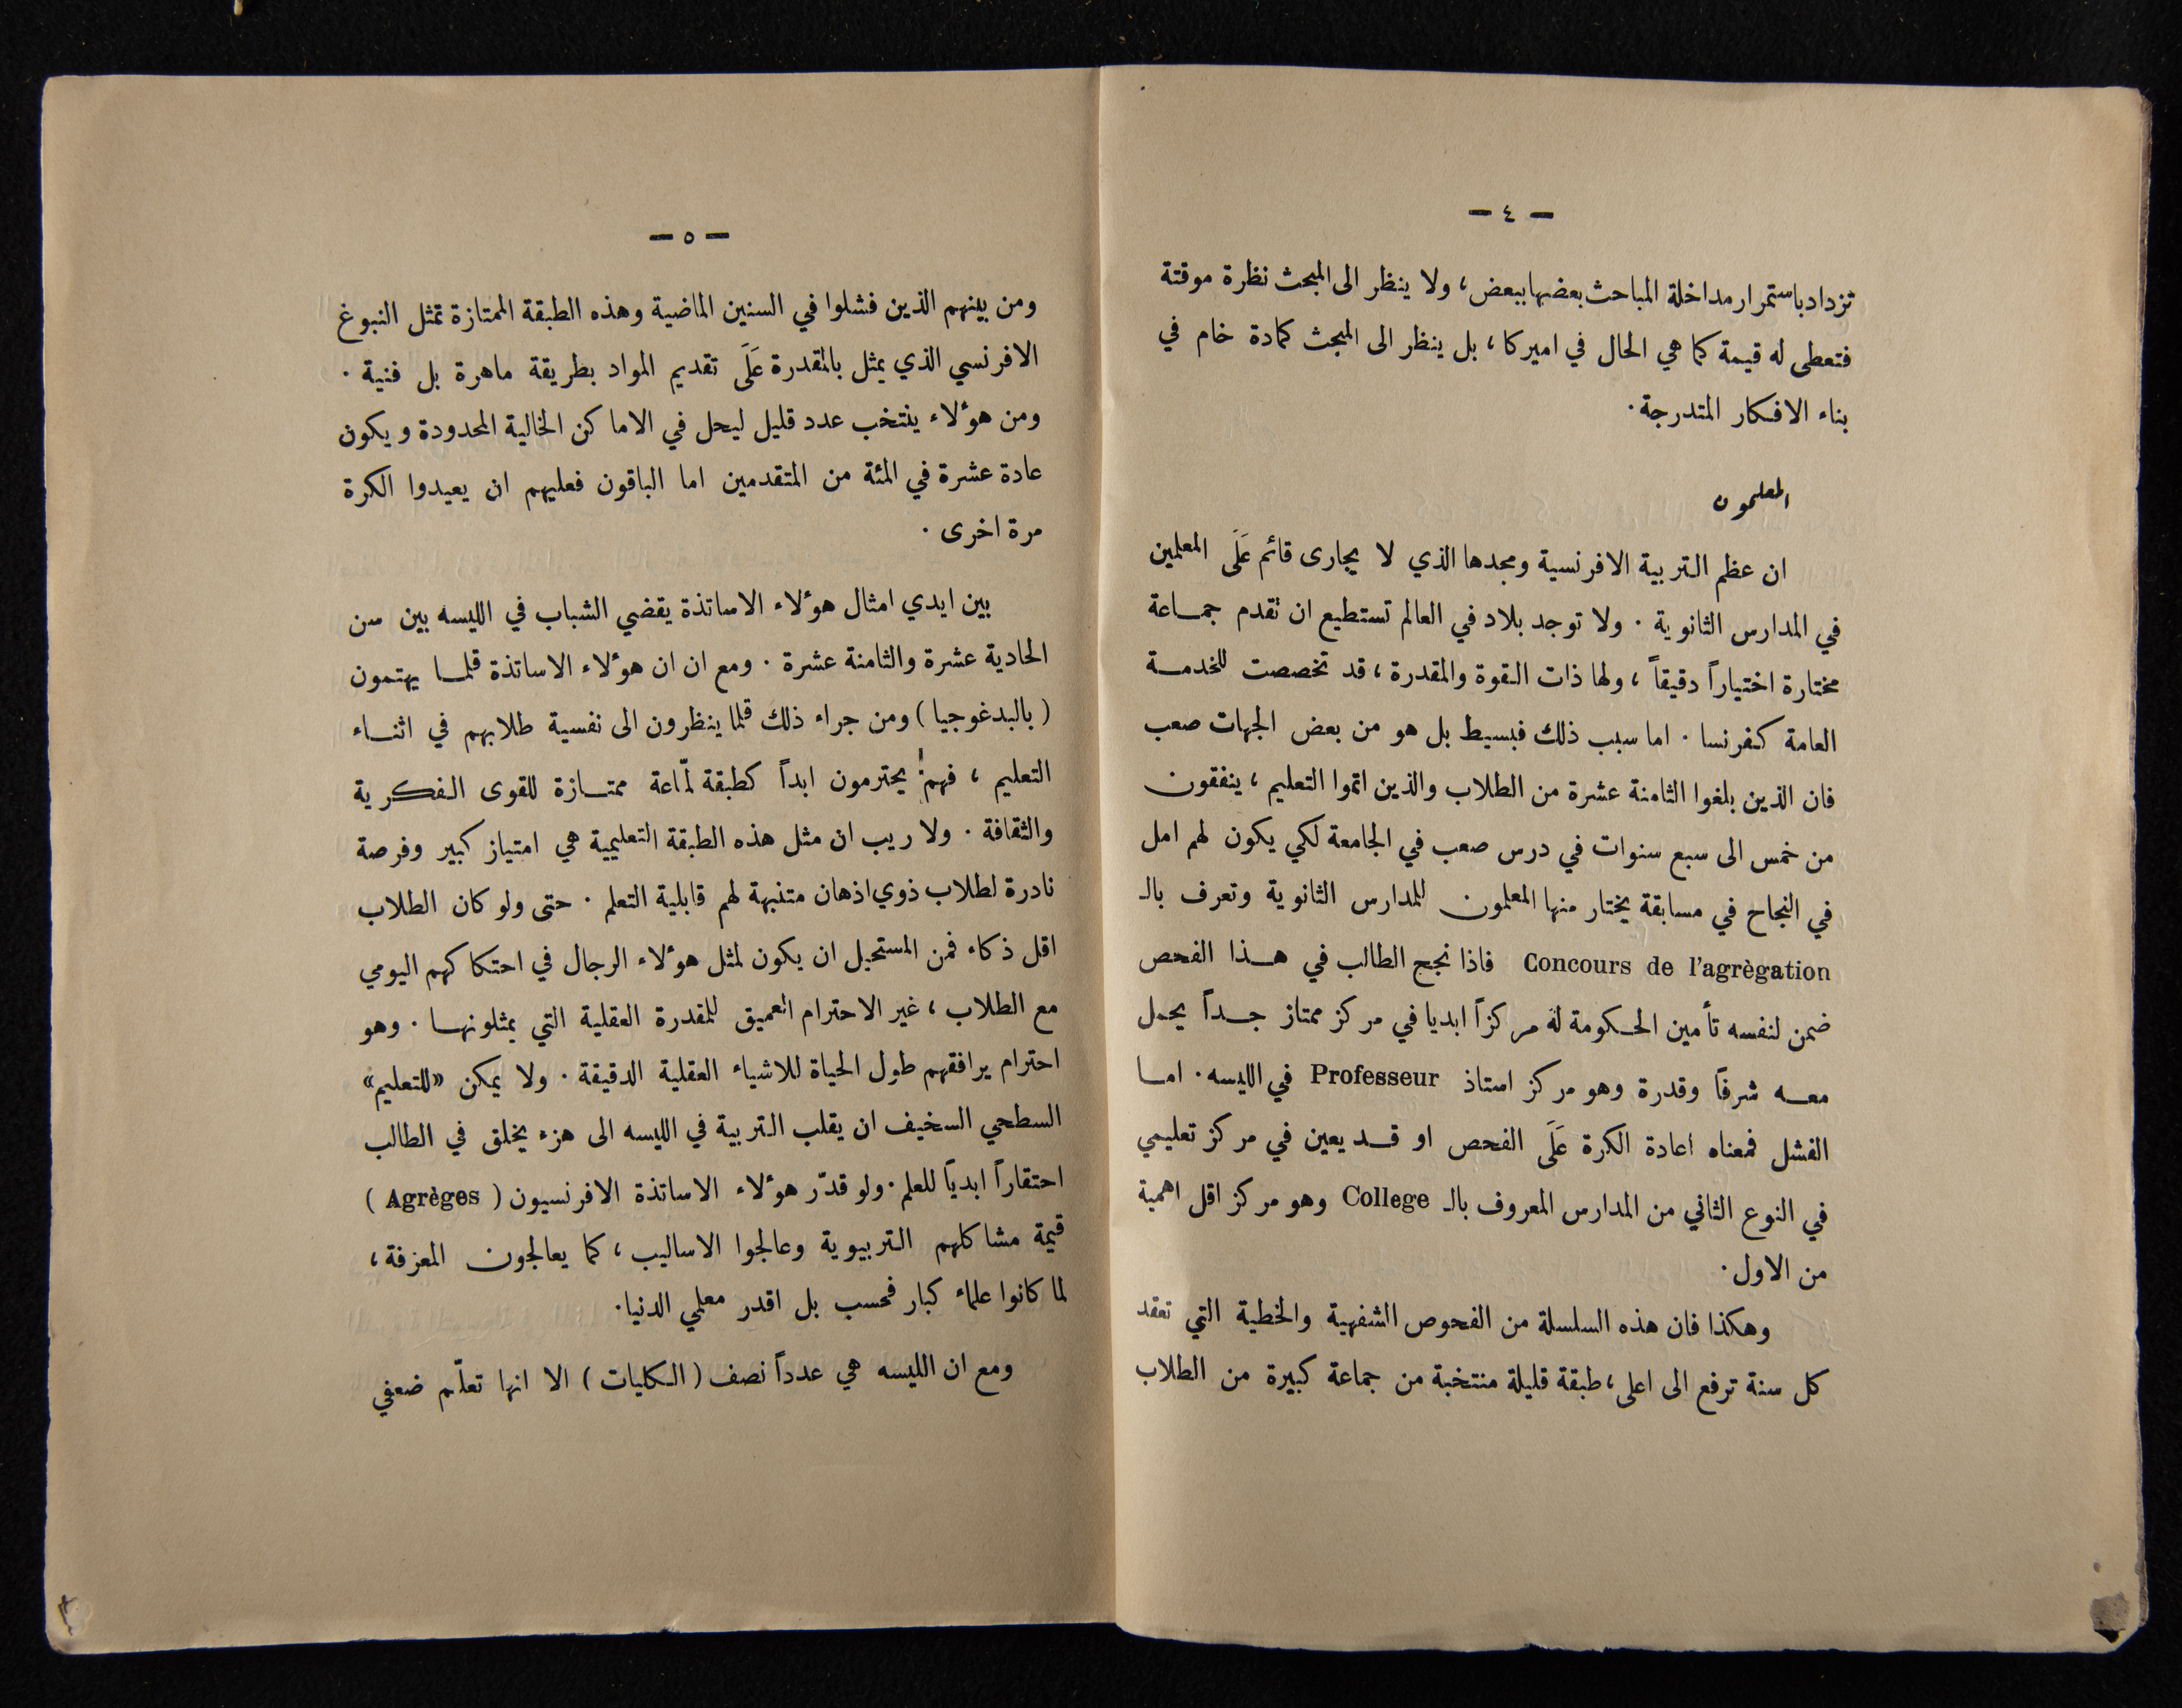 — ٤ —
تزداد باستمرار مداخلة المباحث بعضها ببعض، ولا ينظر الى المبحث نظرة موقتة
فتعطى له قيمة كما هي الحال في اميركا، بل ينظر الى المبحث كمادة خام في
بناء الافكار المتدرجة.
المعلمون
ان عظم التربية الافرنسية ومجدها الذي لا يجارى قائم عَلَى المعلمين
في المدارس الثانوية. ولا توجد بلاد في العالم تستطيع ان تقدم جماعة
مختارة اختياراً دقيقاً، ولها ذات القوة والمقدرة، قد تخصصت للخدمة
العامة كفرنسا. اما سبب ذلك فبسيط بل هو من بعض الجهات صعب
فان الذين بلغوا الثامنة عشرة من الطلاب والذين اتموا التعليم، ينفقون
من خمس الى سبع سنوات في درس صعب في الجامعة لكي يكون لهم امل
في النجاح في مسابقة يختار منها المعلمون للمدارس الثانوية وتعرف بالـ
Concours de l'agrègation فاذا نجح الطالب في هذا الفحص
ضمن لنفسه تأمين الحكومة له مركزاً ابديا في مركز ممتاز جداً يحمل
معه شرفاً وقدرة وهو مركز استاذ Professeur في الليسه. اما
الفشل فمعناه اعادة الكرة عَلَى الفحص او قد يعين في مركز تعليمي
في النوع الثاني من المدارس المعروف بالـ College وهو مركز اقل اهمية
من الاول.
وهكذا فان هذه السلسلة من الفحوص الشفهية والخطية التي تعقد
كل سنة ترفع الى اعلى، طبقة قليلة منتخبة من جماعة كبيرة من الطلاب
— ٥ —
ومن بينهم الذين فشلوا في السنين الماضية وهذه الطبقة الممتازة تمثل النبوغ
الافرنسي الذي يمثل بالمقدرة عَلَى تقديم المواد بطريقة ماهرة بل فنية.
ومن هؤلاء ينتخب عدد قليل ليحل في الاماكن الخالية المحدودة ويكون
عادة عشرة في المئة من المتقدمين اما الباقون فعليهم ان يعيدوا الكرة
مرة اخرى.
بين ايدي امثال هؤلاء الاساتذة يقضي الشباب في الليسه بين سن
الحادية عشرة والثامنة عشرة. ومع ان ان هؤلاء الاساتذة قلما يهتمون
(بالبدغوجيا) ومن جراء ذلك قلما ينظرون الى نفسية طلابهم في اثناء
التعليم، فهم يحترمون ابداً كطبقة لمّاعة ممتازة للقوى الفكرية
والثقافة. ولا ريب ان مثل هذه الطبقة التعليمية هي امتياز كبير وفرصة
نادرة لطلاب ذوي اذهان متنبهة لهم قابلية التعلم. حتى ولو كان الطلاب
اقل ذكاء فمن المستحيل ان يكون لمثل هؤلاء الرجال في احتكاكهم اليومي
مع الطلاب، غير الاحترام العميق للمقدرة العقلية التي يمثلونها. وهو
احترام يرافقهم طول الحياة للاشياء العقلية الدقيقة. ولا يمكن «للتعليم»
السطحي السخيف ان يقلب التربية في الليسه الى هزء يخلق في الطالب
احتقاراً ابدياً للعلم. ولو قدّر هؤلاء الاساتذة الافرنسيون (Agrèges)
قيمة مشاكلهم التربيوية وعالجوا الاساليب، كما يعالجون المعرفة،
لما كانوا علماء كبار فحسب بل اقدر معلمي الدنيا.
ومع ان الليسه هي عدداً نصف (الكليات) الا انها تعلّم ضعفي